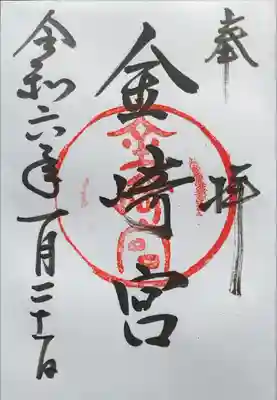 奉拝
金崎宮
令和六年一月二十一日